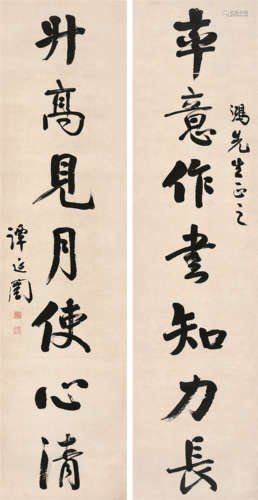 鴻先生正之
率意作書知力長
升高見月使心清
譚延闓